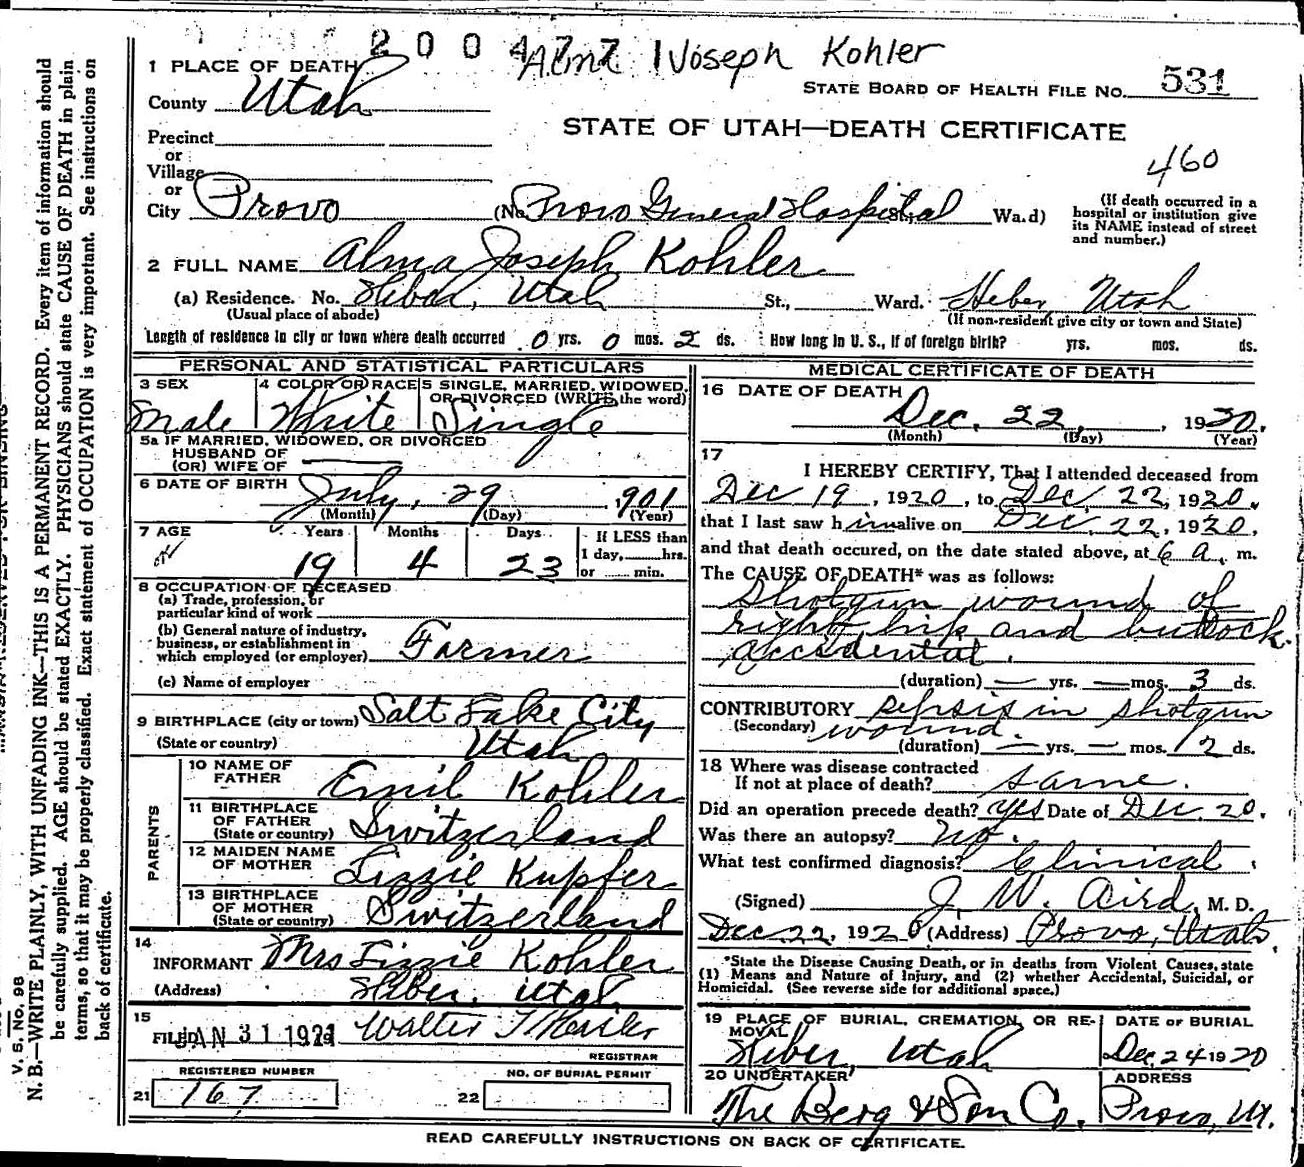 200477 Alma Joseph Kohler
STATE BOARD OF HEALTH FILE NO. 531
STATE OF UTAH—DEATH CERTIFICATE
460
1 PLACE OF DEATH
County Utah
Precinct
or
Village
or
City Provo (No. Provo General Hospital St., Ward)
(If death occurred in a
hospital or institution give
its NAME instead of street
and number.)
2 FULL NAME Alma Joseph Kohler
(a) Residence. No. Heber, Utah St., Ward. Heber Utah
(Usual place of abode) (If non-resident give city or town and State)
Length of residence in city or town where death occurred 0 yrs. 0 mos. 2 ds. How long in U. S., if of foreign birth? yrs. mos. ds.
PERSONAL AND STATISTICAL PARTICULARS
3 SEX 4 COLOR OR RACE 5 SINGLE, MARRIED, WIDOWED,
OR DIVORCED (WRITE the word)
Male White Single
5a IF MARRIED, WIDOWED, OR DIVORCED
HUSBAND OF
(OR) WIFE OF
6 DATE OF BIRTH July, 29, 1901
(Month) (Day) (Year)
7 AGE Years Months Days If LESS than
1 day, hrs.
19 4 23 or min.
8 OCCUPATION OF DECEASED
(a) Trade, profession, or
particular kind of work
(b) General nature of industry,
business, or establishment in
which employed (or employer) Farmer
(c) Name of employer
9 BIRTHPLACE (city or town) Salt Lake City
(State or country) Utah
PARENTS
10 NAME OF
FATHER Emil Kohler
11 BIRTHPLACE
OF FATHER
(State or country) Switzerland
12 MAIDEN NAME
OF MOTHER Lizzie Kupfer
13 BIRTHPLACE
OF MOTHER
(State or country) Switzerland
14
INFORMANT Mrs Lizzie Kohler
(Address) Heber, Utah
15
FILED JAN 31 1921 Walter T
REGISTRAR
REGISTERED NUMBER NO. OF BURIAL PERMIT
21 167 22
MEDICAL CERTIFICATE OF DEATH
16 DATE OF DEATH
Dec. 22, 1920.
(Month) (Day) (Year)
17
I HEREBY CERTIFY, That I attended deceased from
Dec 19, 1920, to Dec. 22, 1920.
that I last saw him alive on Dec. 22, 1920,
and that death occured, on the date stated above, at 6 a. m.
The CAUSE OF DEATH* was as follows:
Shotgun wound of
right hip and buttock
accidental.
(duration) — yrs. — mos. 3 ds.
CONTRIBUTORY sepsis in shotgun
(Secondary) wound.
(duration) — yrs. — mos. 2 ds.
18 Where was disease contracted
If not at place of death? same.
Did an operation precede death? yes Date of Dec. 20.
Was there an autopsy? no.
What test confirmed diagnosis? Clinical
(Signed) J. W. Aird, M. D.
Dec. 22, 1920 (Address) Provo, Utah.
*State the Disease Causing Death, or in deaths from Violent Causes, state
(1) Means and Nature of Injury, and (2) whether Accidental, Suicidal, or
Homicidal. (See reverse side for additional space.)
19 PLACE OF BURIAL, CREMATION, OR RE-
MOVAL DATE OF BURIAL
Heber, Utah Dec. 24 1920
20 UNDERTAKER ADDRESS
The Berg & Son Co. Provo, Ut.
READ CAREFULLY INSTRUCTIONS ON BACK OF CERTIFICATE.
V. S. No. 98
N. B.—WRITE PLAINLY, WITH UNFADING INK—THIS IS A PERMANENT RECORD. Every item of information should
be carefully supplied. AGE should be stated EXACTLY. PHYSICIANS should state CAUSE OF DEATH in plain
terms, so that it may be properly classified. Exact statement of OCCUPATION is very important. See instructions on
back of certificate.